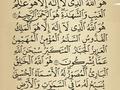 هُوَ اللَّهُ الَّذِي لَا إِلَٰهَ إِلَّا هُوَ عَالِمُ
الْغَيْبِ وَالشَّهَادَةِ هُوَ الرَّحْمَٰنُ الرَّحِيمُ
هُوَ اللَّهُ الَّذِي لَا إِلَٰهَ إِلَّا هُوَ الْمَلِكُ
الْقُدُّوسُ السَّلَامُ الْمُؤْمِنُ الْمُهَيْمِنُ
الْعَزِيزُ الْجَبَّارُ الْمُتَكَبِّرُ سُبْحَانَ اللَّهِ
عَمَّا يُشْرِكُونَ هُوَ اللَّهُ الْخَالِقُ
الْبَارِئُ الْمُصَوِّرُ لَهُ الْأَسْمَاءُ الْحُسْنَىٰ